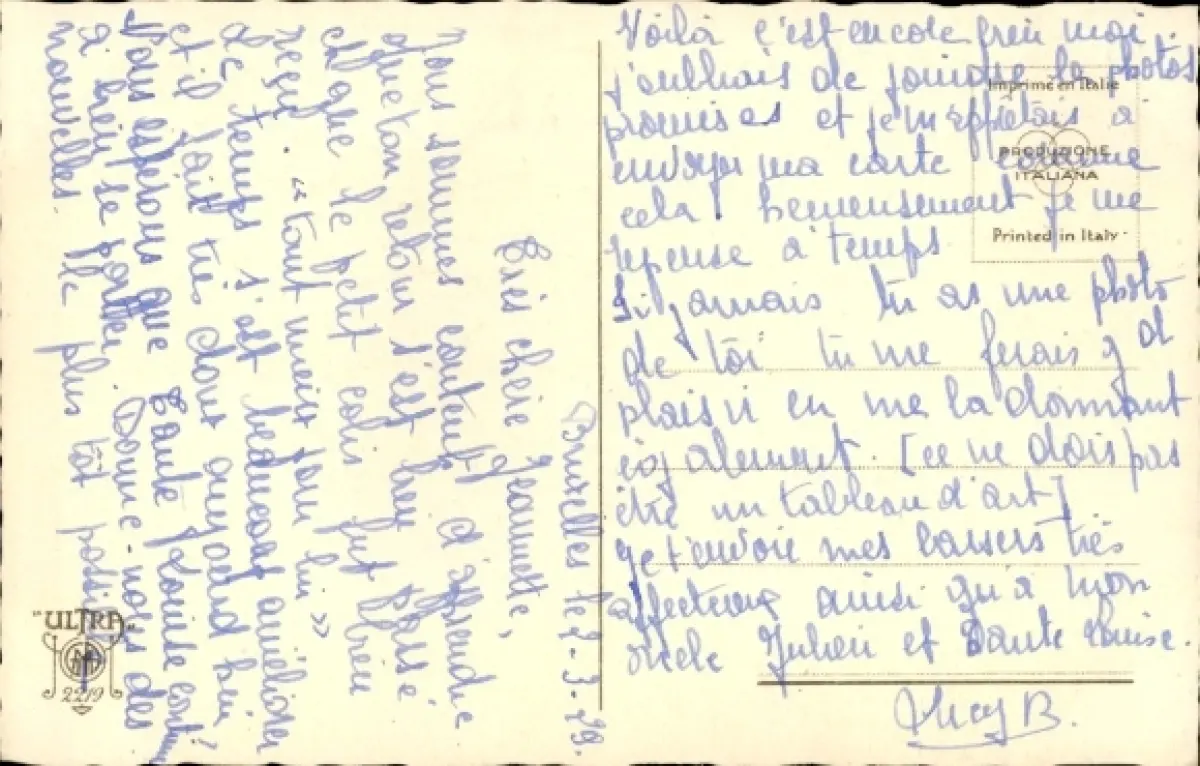 Bruxelles le 2-3-29.
Très chère Jeannette,
Nous sommes content d'apprendre
que ton retour s'est bien passé
et que le petit colis fut bien
reçu. "tant mieux pour lui"
Le temps s'est beaucoup améliorer
et il fait très doux aujourd'hui
Nous espérons que Tante Louise continu
à bien se porter. Donne-nous des
nouvelles le plus tôt possible
Voilà c'est encore bien moi
j'oubliais de joindre la photos
promises et je m'apprêtais à
envoyer ma carte comme
cela! heureusement je me
repense à temps
Si jamais tu as une photo
de toi tu me ferais g d
plaisir en me la donnant
également. [ce ne dois pas
être un tableau d'art]
Je t'envoie mes baisers très
affectueux ainsi qu'à mon
oncle Julien et Tante Louise.
B.
Imprimé en Italie
PRODUZIONE
ITALIANA
Printed in Italy
"ULTRA"
2219